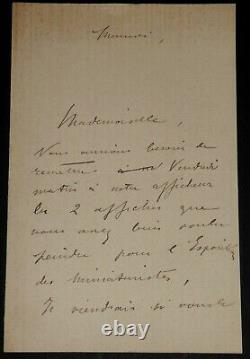 Mademoiselle,
Nous aurions besoin de
remettre Vendredi
matin à notre afficheur
les 2 affiches que
vous avez bien voulu
peindre pour l'
des Miniaturistes,
Je viendrais si vous le
ebay